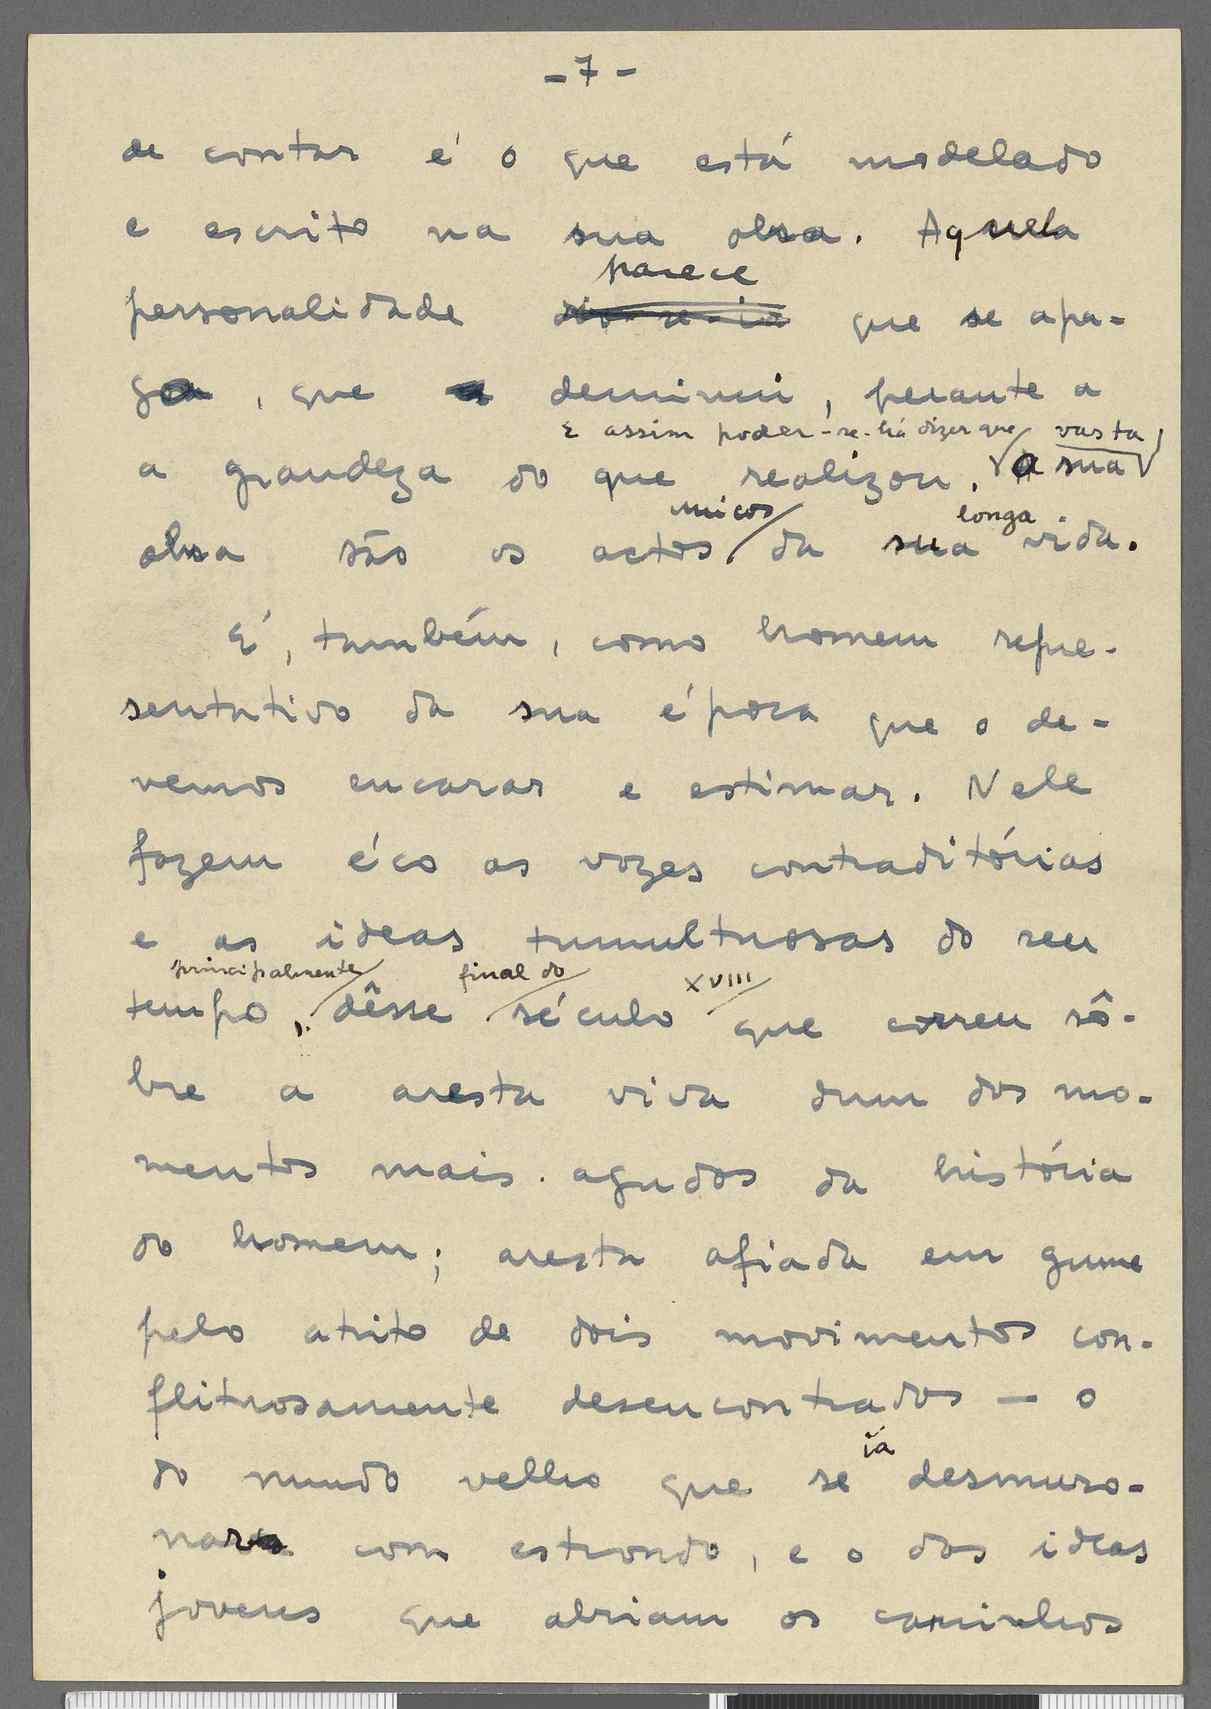 - 7 -
de contar é o que está modelado
e escrito na sua obra. Aquela
parece
personalidade dir-se-ia que se apa-
ga, que deminui, perante a
E assim poder-se-há dizer que vasta
a grandeza do que realizou. a sua
unicos longa
obra são os actos da sua vida.
É, também, como homem repre-
sentativo da sua época que o de-
vemos encarar e estimar. Nele
fazem éco as vozes contraditórias
e as ideas tumultuosas do seu
principalmente final do XVIII
tempo, dêsse século que correu sô-
bre a aresta viva dum dos mo-
mentos mais agudos da história
do homem; aresta afiada em gume
pelo atrito de dois movimentos con-
flituosamente desencontrados — o
ia
do mundo velho que se desmuro-
nar com estrondo, e o das ideas
jovens que abriam os caminhos